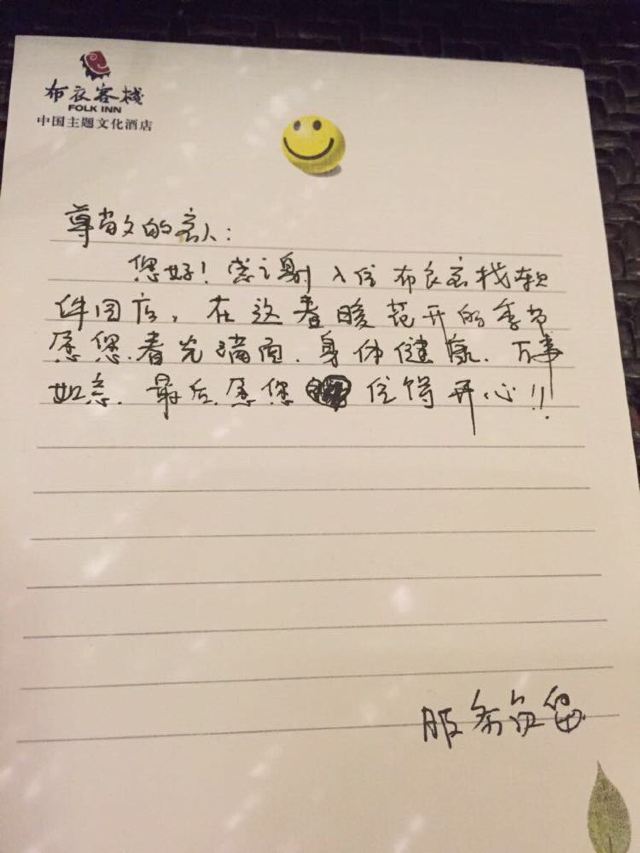 布衣客栈
FOLK INN
中国主题文化酒店
尊敬的客人:
您好!感谢入住布衣客栈软
件园店,在这春暖花开的季节
愿您春光满面.身体健康.万事
如意.最后.愿您住得开心!!
服务员留